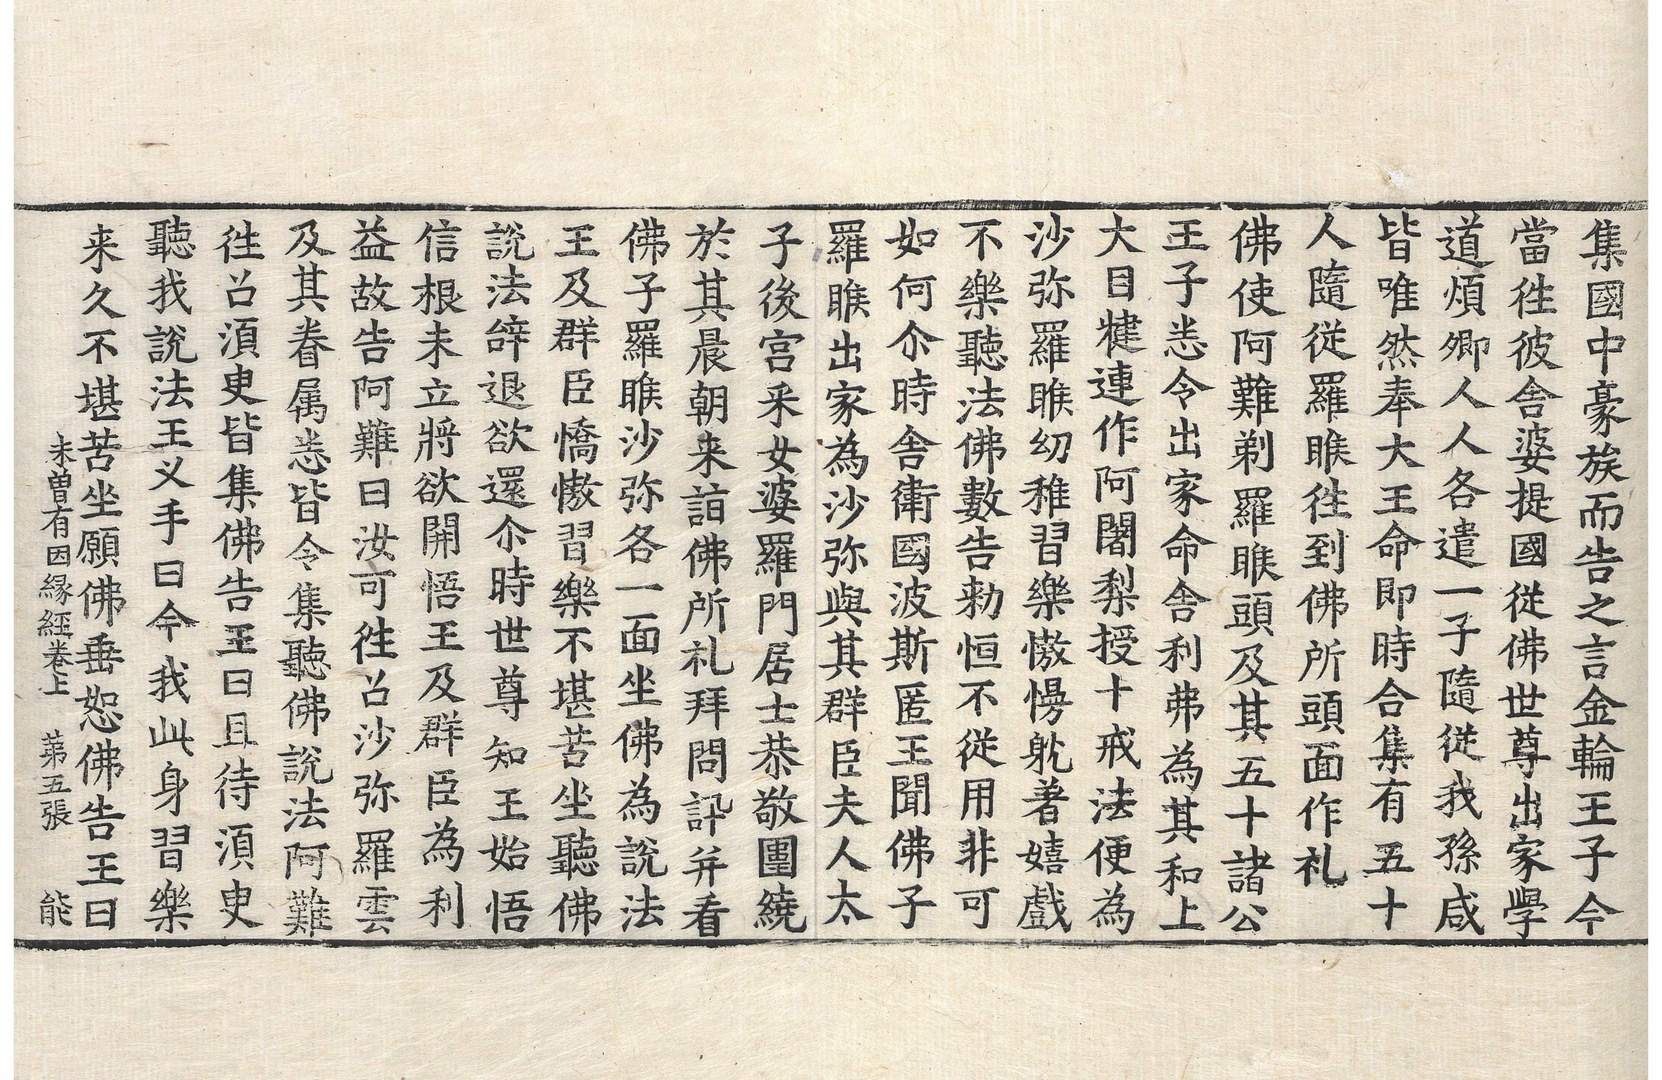 集國中豪族而告之言金輪王子今
當往彼舍婆提國從佛世尊出家學
道煩卿人人各遣一子隨從我孫咸
皆唯然奉大王命即時合集有五十
人隨從羅睺往到佛所頭面作礼
佛使阿難剃羅睺頭及其五十諸公
王子悉令出家命舍利弗為其和上
大目揵連作阿闍梨授十戒法便為
沙弥羅睺幼稚習樂憿慢躭著嬉戲
不樂聽法佛數告勑恒不從用非可
如何尒時舍衛國波斯匿王聞佛子
羅睺出家為沙弥與其群臣夫人太
子後宮采女婆羅門居士恭敬圍繞
於其晨朝来詣佛所礼拜問訊并看
佛子羅睺沙弥各一面坐佛為說法
王及群臣憍憿習樂不堪苦坐聽佛
說法辝退欲還尒時世尊知王始悟
信根未立將欲開悟王及群臣為利
益故告阿難曰汝可往召沙弥羅雲
及其眷属悉皆令集聽佛說法阿難
往召湏臾皆集佛告王曰且待湏臾
聽我說法王义手曰今我此身習樂
来久不堪苦坐願佛垂恕佛告王曰
未曽有因縁經卷上 苐五張 能